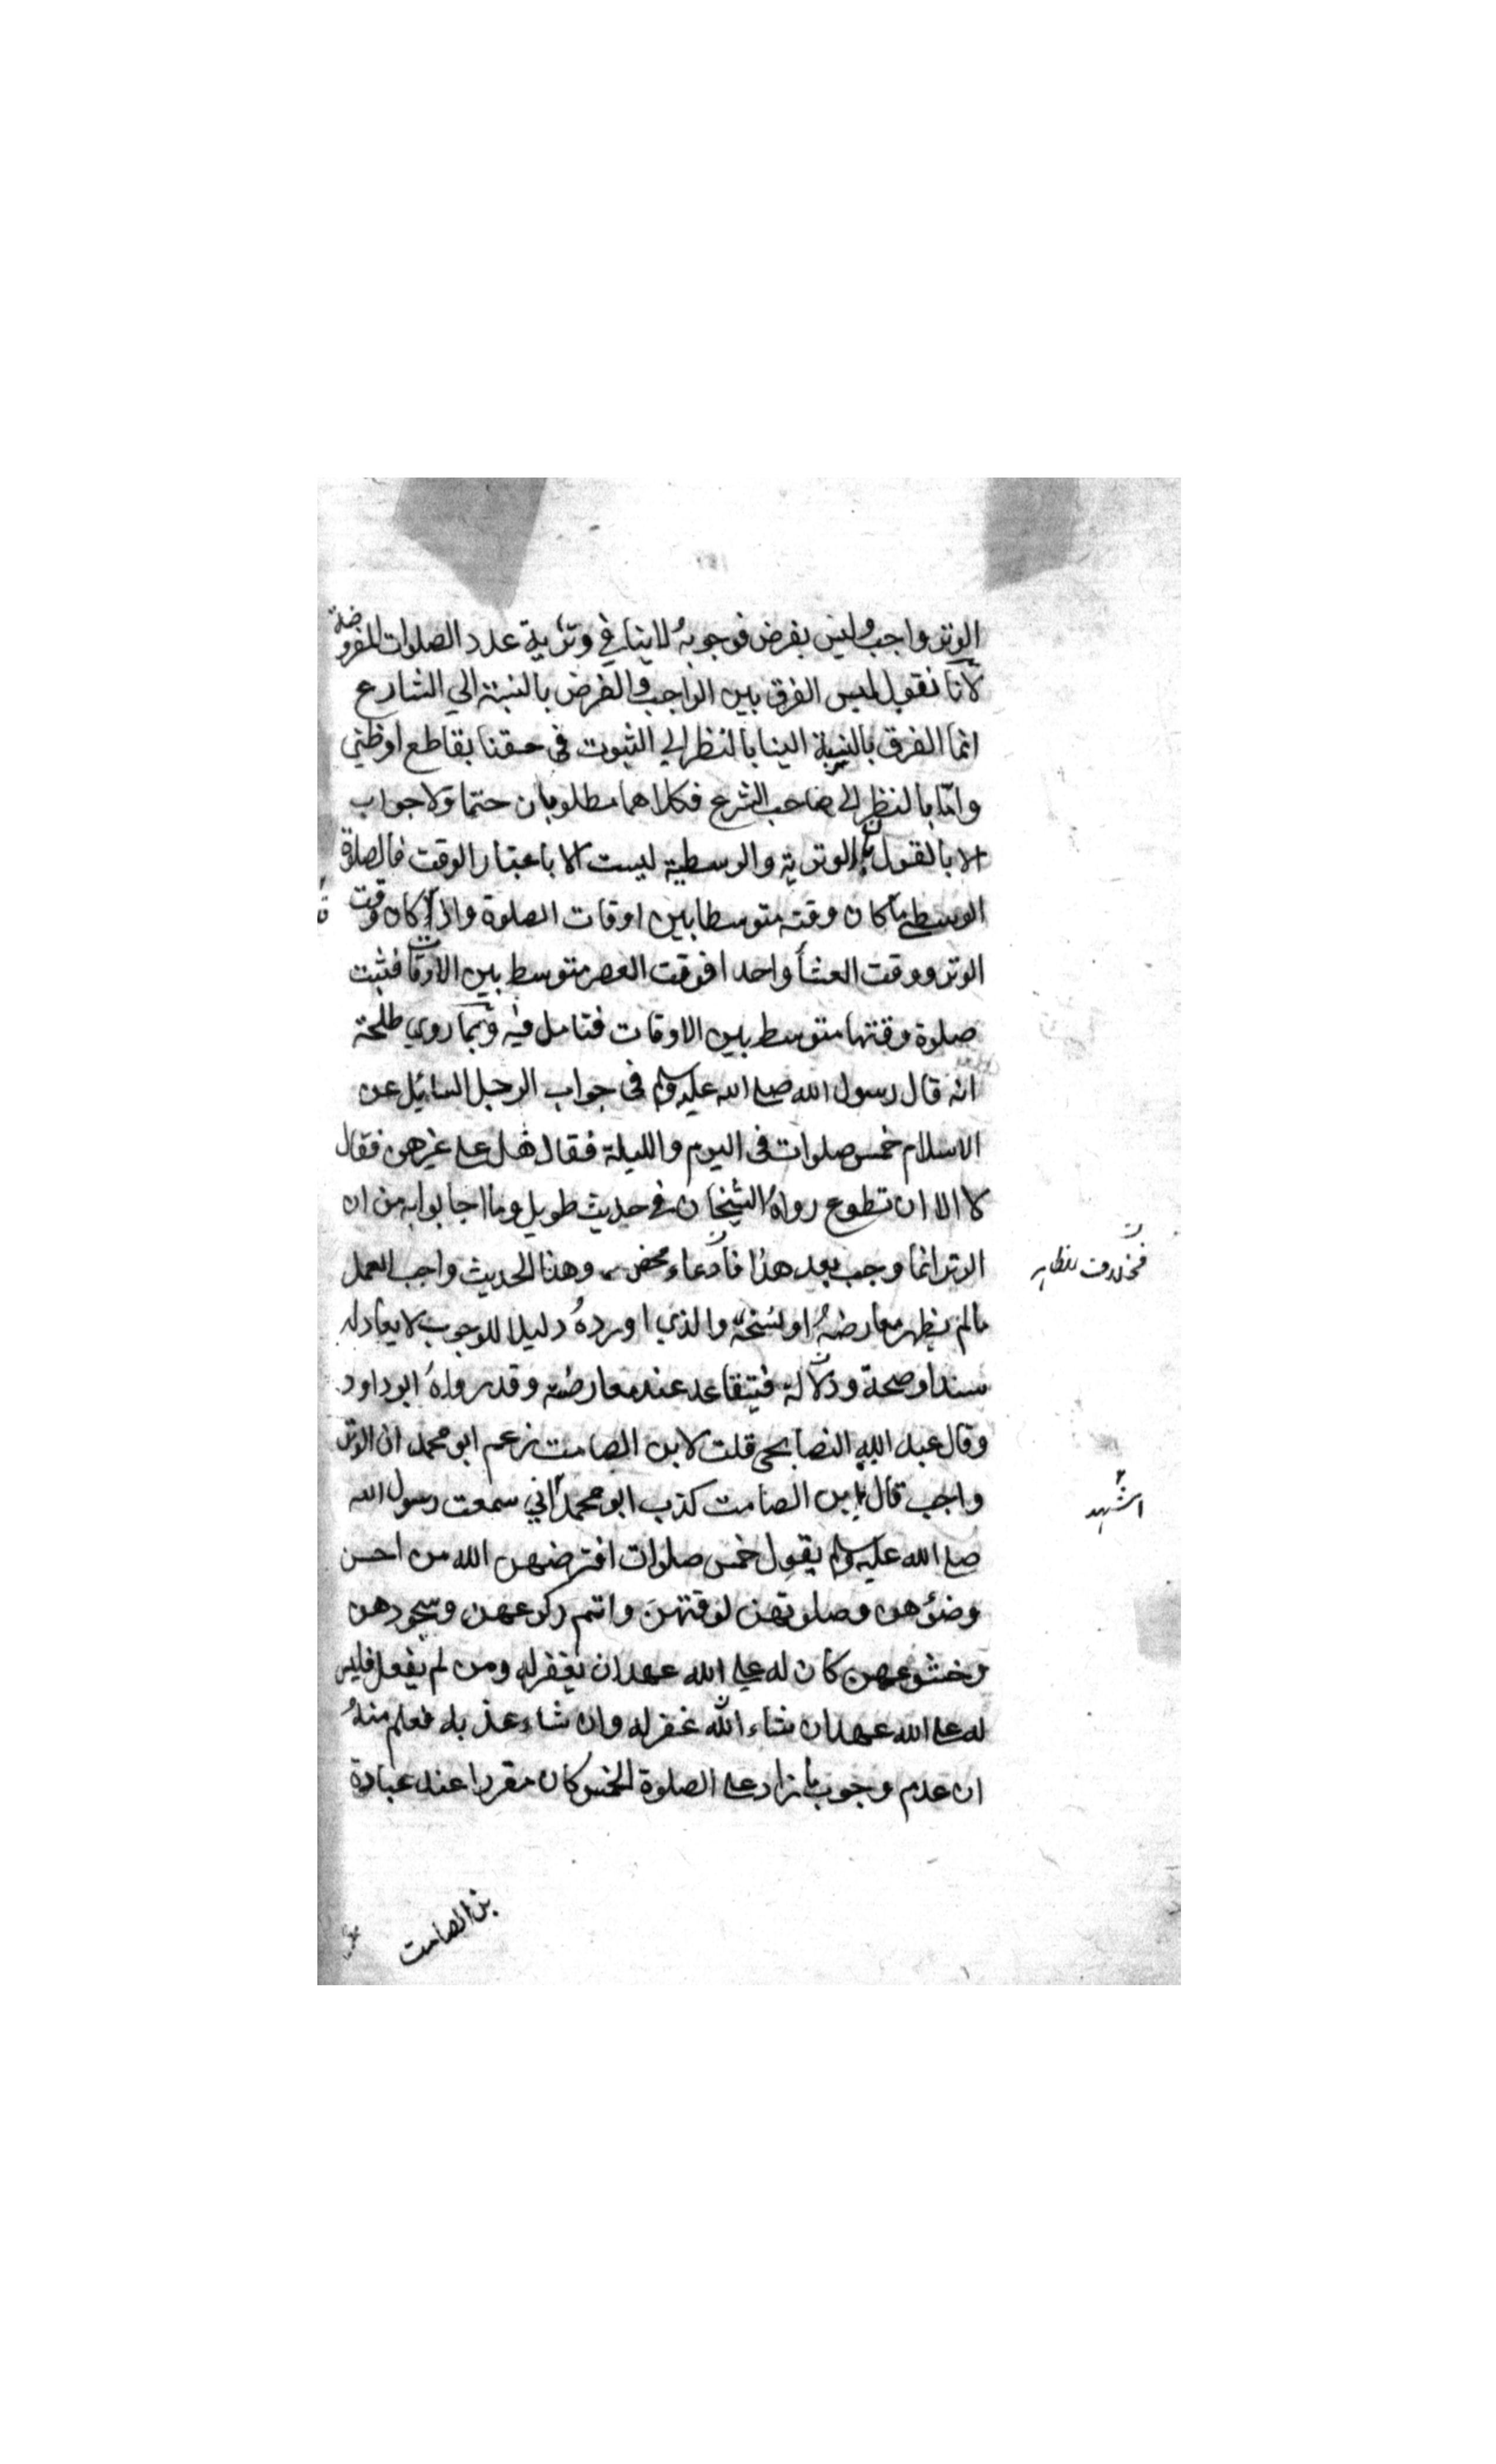 الوتر واجب وليس بفرض فوجوبهُ لاينافي وترية عدد الصلوات المفروضة
لانّا نقول ليس الفرق بين الواجب والفرض بالنسبة الي الشارع
انما الفرق بالنسبة الينا بالنظر الي الثبوت في حقنا بقاطع او ظني
وامّا بالنظر الي صاحب الشرع فكلاهما مطلوبان حتما ولا جواب
الا بالقول بان الوترية والوسطية ليست الا باعتبار الوقت فالصلوة
الوسطي ما كان وقته متوسطا بين اوقات الصلوة واذا كان وقت
الوتر ووقت العشأ واحدا فوقت العصر متوسط بين الاوقات فثبت
صلوة وقتها متوسط بين الاوقات فتامل فيه وبما روي طلحة
انه قال رسول الله صلي الله عليه وسلم في جواب الرجل السائل عن
الاسلام خمس صلوات في اليوم والليلة فقال هل علي غيرهن فقال
لا الا ان تطوع رواهُ الشيخان في حديث طويل وما اجابوا به من ان
الوتر انما وجب بعد هذا فادعاء محض وهذا الحديث واجب العمل
مالم يظهر معارضهُ او نسخهُ والذي اوردهُ دليلا للوجوب لا يعادله
سندا وصحة ودلالة فيتقاعد عند معارضته وقد رواهُ ابو داود
وقال عبد الله الصنابحي قلت لابن الصامت زعم ابو محمد ان الوتر
واجب قال ابن الصامت كذب ابو محمد اني سمعت رسول الله
صلي الله عليه وسلم يقول خمس صلوات افترضهن الله من احسن
وضؤهن وصلوتهن لوقتهن واتم ركوعهن وسجودهن
وخشوعهن كان له علي الله عهد ان يغفر له ومن لم يفعل فليس
له علي الله عهد ان شاء الله غفر له وان شاء عذبه فعلم منهُ
ان عدم وجوب ما زاد علي الصلوة الخمس كان مقررا عند عبادة
بن الصامت
اشهد